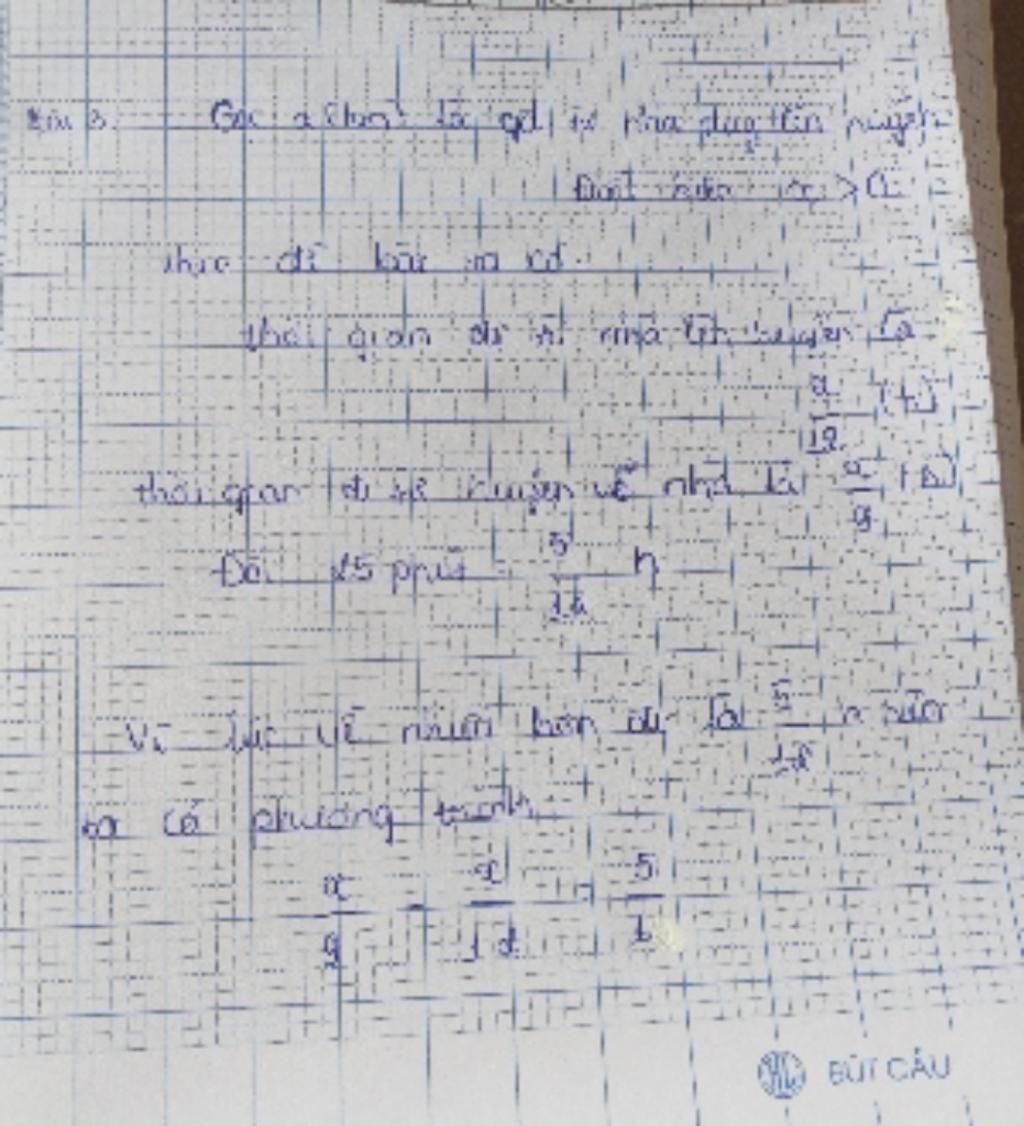 Gọi x (km) là qđ từ nhà lên huyện
Điều kiện x > 0
theo đề bài ta có
thời gian đi từ nhà lên huyện là
x/12 (h)
thời gian đi từ huyện về nhà là x/9 (h)
Đổi 25 phút = 5/12 h
Vì lúc về nhiều hơn đi là 5/12 h nên
ta có phương trình
x/9 - x/12 = 5/1
BÚT CẦU